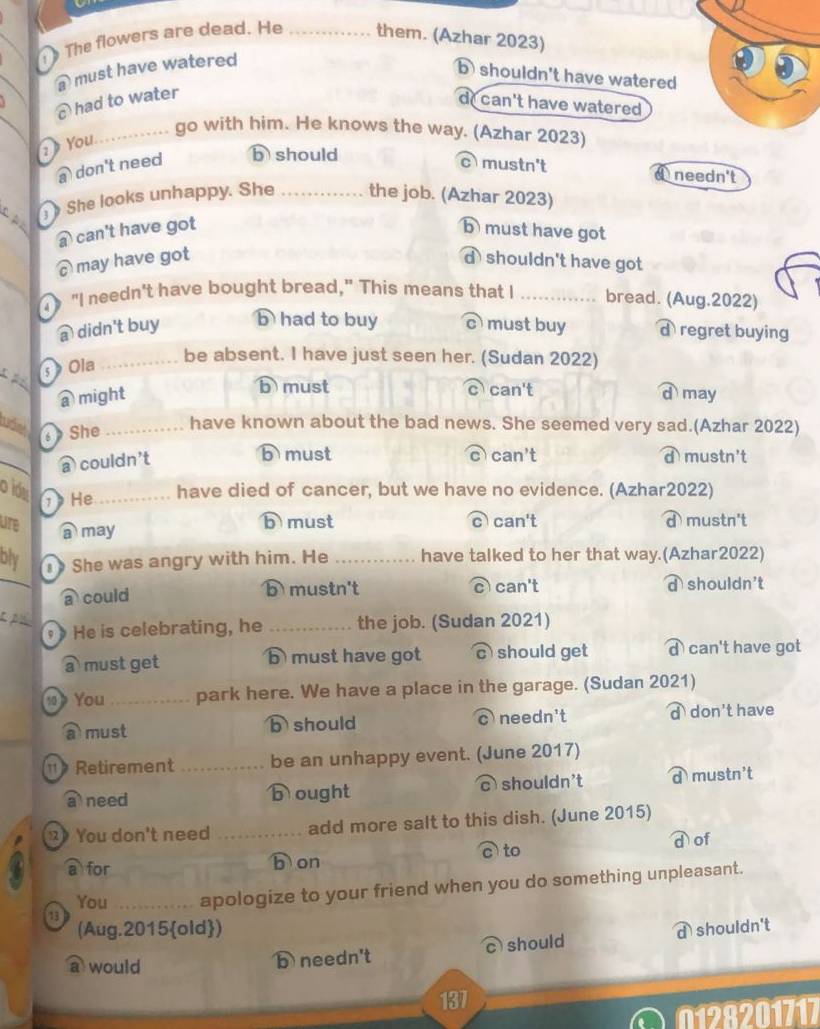 1 The flowers are dead. He ............. them. (Azhar 2023)
a must have watered b shouldn't have watered
c had to water d can't have watered
2 You............. go with him. He knows the way. (Azhar 2023)
a don't need b should c mustn't d needn't
3 She looks unhappy. She ............. the job. (Azhar 2023)
a can't have got b must have got
c may have got d shouldn't have got
4 "I needn't have bought bread," This means that I ............. bread. (Aug.2022)
a didn't buy b had to buy c must buy d regret buying
5 Ola ............. be absent. I have just seen her. (Sudan 2022)
a might b must c can't d may
6 She ............. have known about the bad news. She seemed very sad.(Azhar 2022)
a couldn't b must c can't d mustn't
7 He............. have died of cancer, but we have no evidence. (Azhar2022)
a may b must c can't d mustn't
8 She was angry with him. He ............. have talked to her that way.(Azhar2022)
a could b mustn't c can't d shouldn't
9 He is celebrating, he ............. the job. (Sudan 2021)
a must get b must have got c should get d can't have got
10 You ............. park here. We have a place in the garage. (Sudan 2021)
a must b should c needn't d don't have
11 Retirement ............. be an unhappy event. (June 2017)
a need b ought c shouldn't d mustn't
12 You don't need ............. add more salt to this dish. (June 2015)
a for b on c to d of
13 You ............. apologize to your friend when you do something unpleasant.
(Aug.2015{old})
a would b needn't c should d shouldn't
137
0128201717